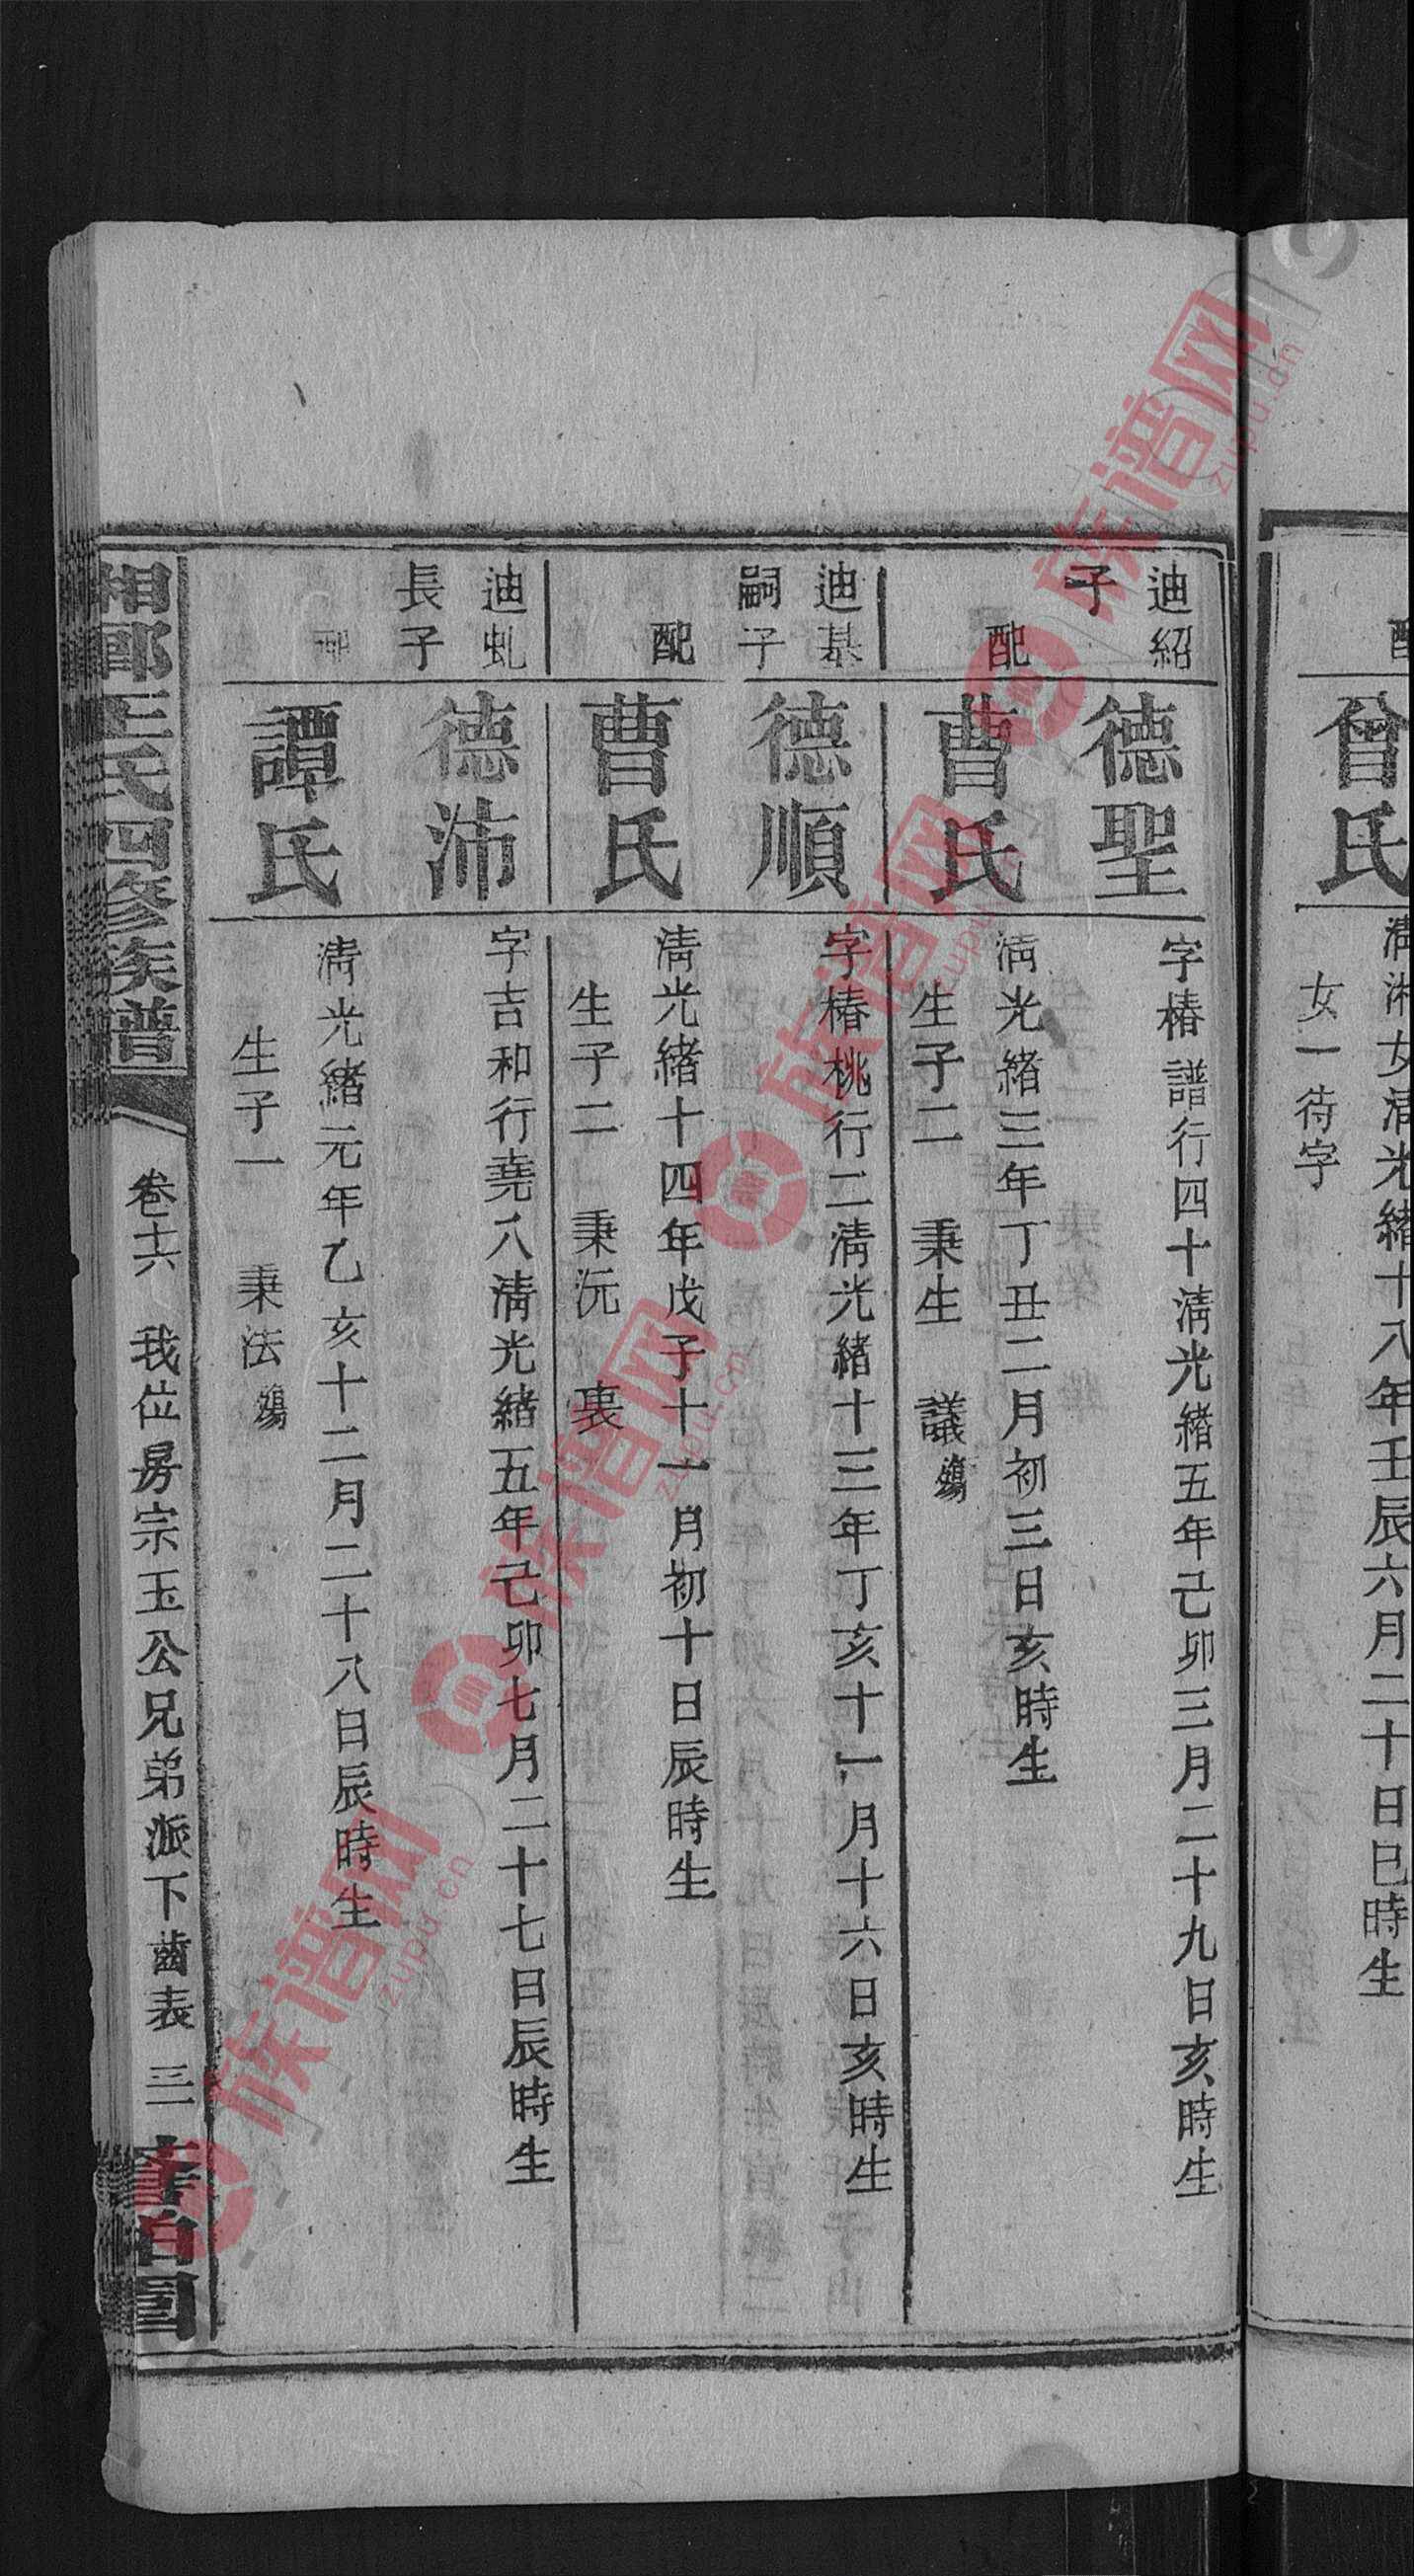 配
曾氏
清湘女清光緒十八年壬辰六月二十日巳時生
女一待字
迪紹
子
德聖
字椿譜行四十清光緒五年己卯三月二十九日亥時生
配
曹氏
清光緒三年丁丑二月初三日亥時生
生子二 秉生 議殤
迪基
嗣子
德順
字椿桃行二清光緒十三年丁亥十一月十六日亥時生
配
曹氏
清光緒十四年戊子十一月初十日辰時生
生子二 秉沅 裏
迪虬
長子
德沛
字吉和行堯八清光緒五年己卯七月二十七日辰時生
配
譚氏
清光緒元年乙亥十二月二十八日辰時生
生子一 秉法殤
湘鄉王氏四修族譜
卷十六 我位房宗玉公兄弟派下齒表 三
族谱网
zupu.cn
族谱网
zupu.cn
族谱网
zupu.cn
族谱网
zupu.cn